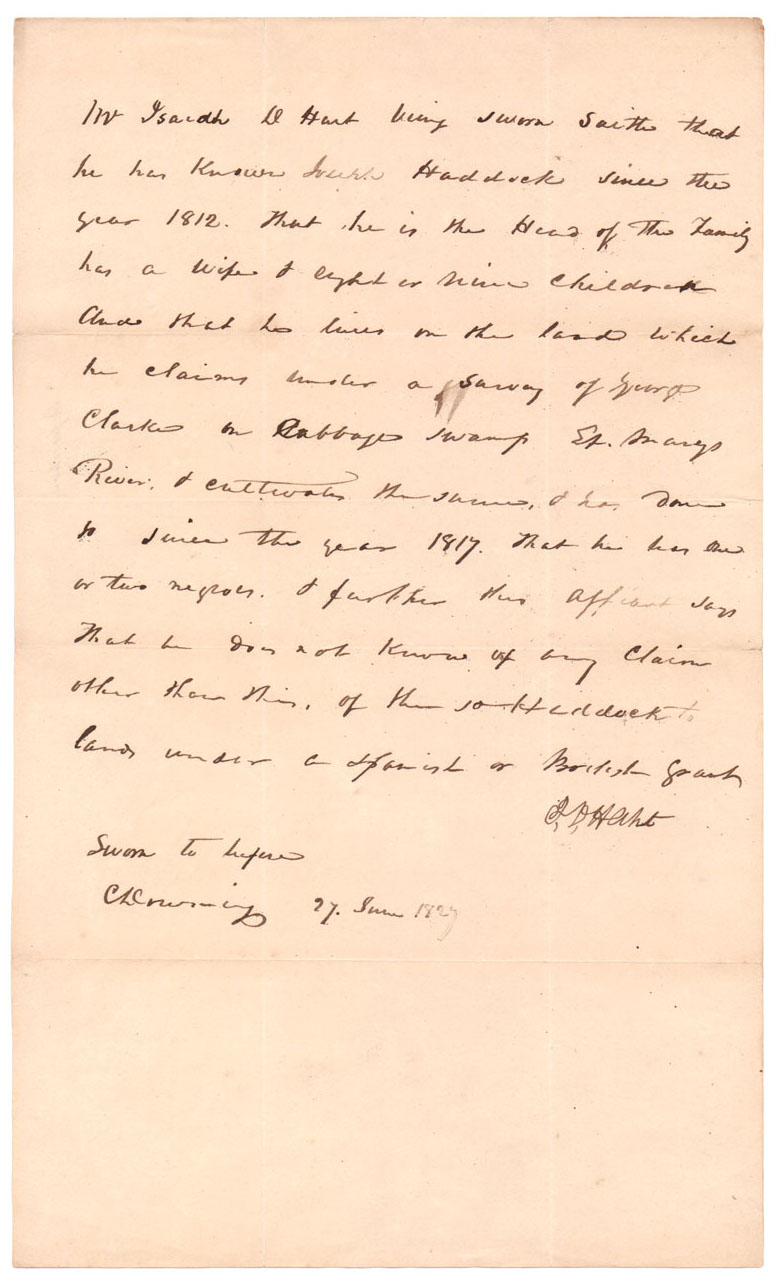 Mr Isaiah D Hart being sworn saith that
he has known Joseph Haddock since the
year 1812. that he is the Head of the Family
has a wife & eight or nine children
And that he lives on the land which
he claims under a survey of George
Clarke on Cabbage swamp St. Marys
River. & cultivates the same, & has done
so since the year 1817. That he has one
or two negroes. & further this affiant says
that he does not know of any Claim
other than this, of the sd Haddock to
lands under a Spanish or British grant
I, D, Hart
Sworn to before
C Downing 27. June 1827